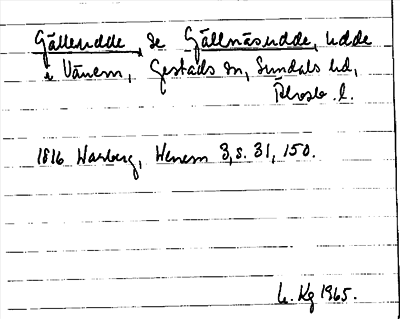 Gälleudde, se Gällnäsudde, udde
i Vänern, Gestads sn, Sundals hd,
Älvsb. l.
1816 Warberg, Wenern 8, s. 31, 150.
L. Kg 1965.